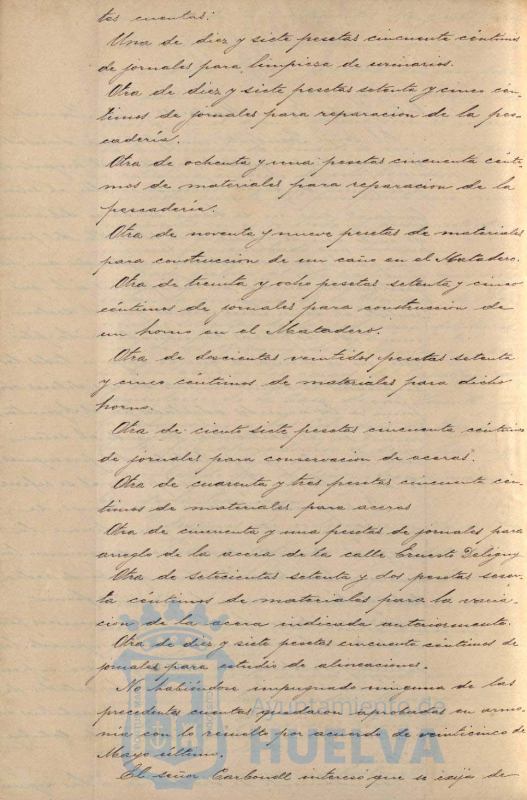 tes cuentas:
Una de diez y siete pesetas cincuenta céntimos
de jornales para limpieza de urinarios.
Otra de diez y siete pesetas setenta y cinco cén-
timos de jornales para reparacion de la pes-
cadería.
Otra de ochenta y una pesetas cincuenta cénti-
mos de materiales para reparacion de la
pescadería.
Otra de noventa y nueve pesetas de materiales
para construccion de un caño en el Matadero.
Otra de treinta y ocho pesetas setenta y cinco
céntimos de jornales para construccion de
un horno en el Matadero.
Otra de doscientas veintidos pesetas setenta
y cinco céntimos de materiales para dicho
horno.
Otra de ciento siete pesetas cincuenta céntimos
de jornales para conservacion de aceras.
Otra de cuarenta y tres pesetas cincuenta cén-
timos de materiales para aceras
Otra de cincuenta y una pesetas de jornales para
arreglo de la acera de la calle Ernesto Deligny
Otra de setecientas setenta y dos pesetas sesen-
ta céntimos de materiales para la varia-
cion de la acera indicada anteriormente.
Otra de diez y siete pesetas cincuenta céntimos de
jornales para estudio de alineaciones.
No habiéndose impugnado ninguna de las
precedentes cuentas quedaron aprobadas en armo-
nía con lo resuelto por acuerdo de veinticinco de
Mayo último.
El señor Carbonell interesó que se exija de
Ayuntamiento de
HUELVA